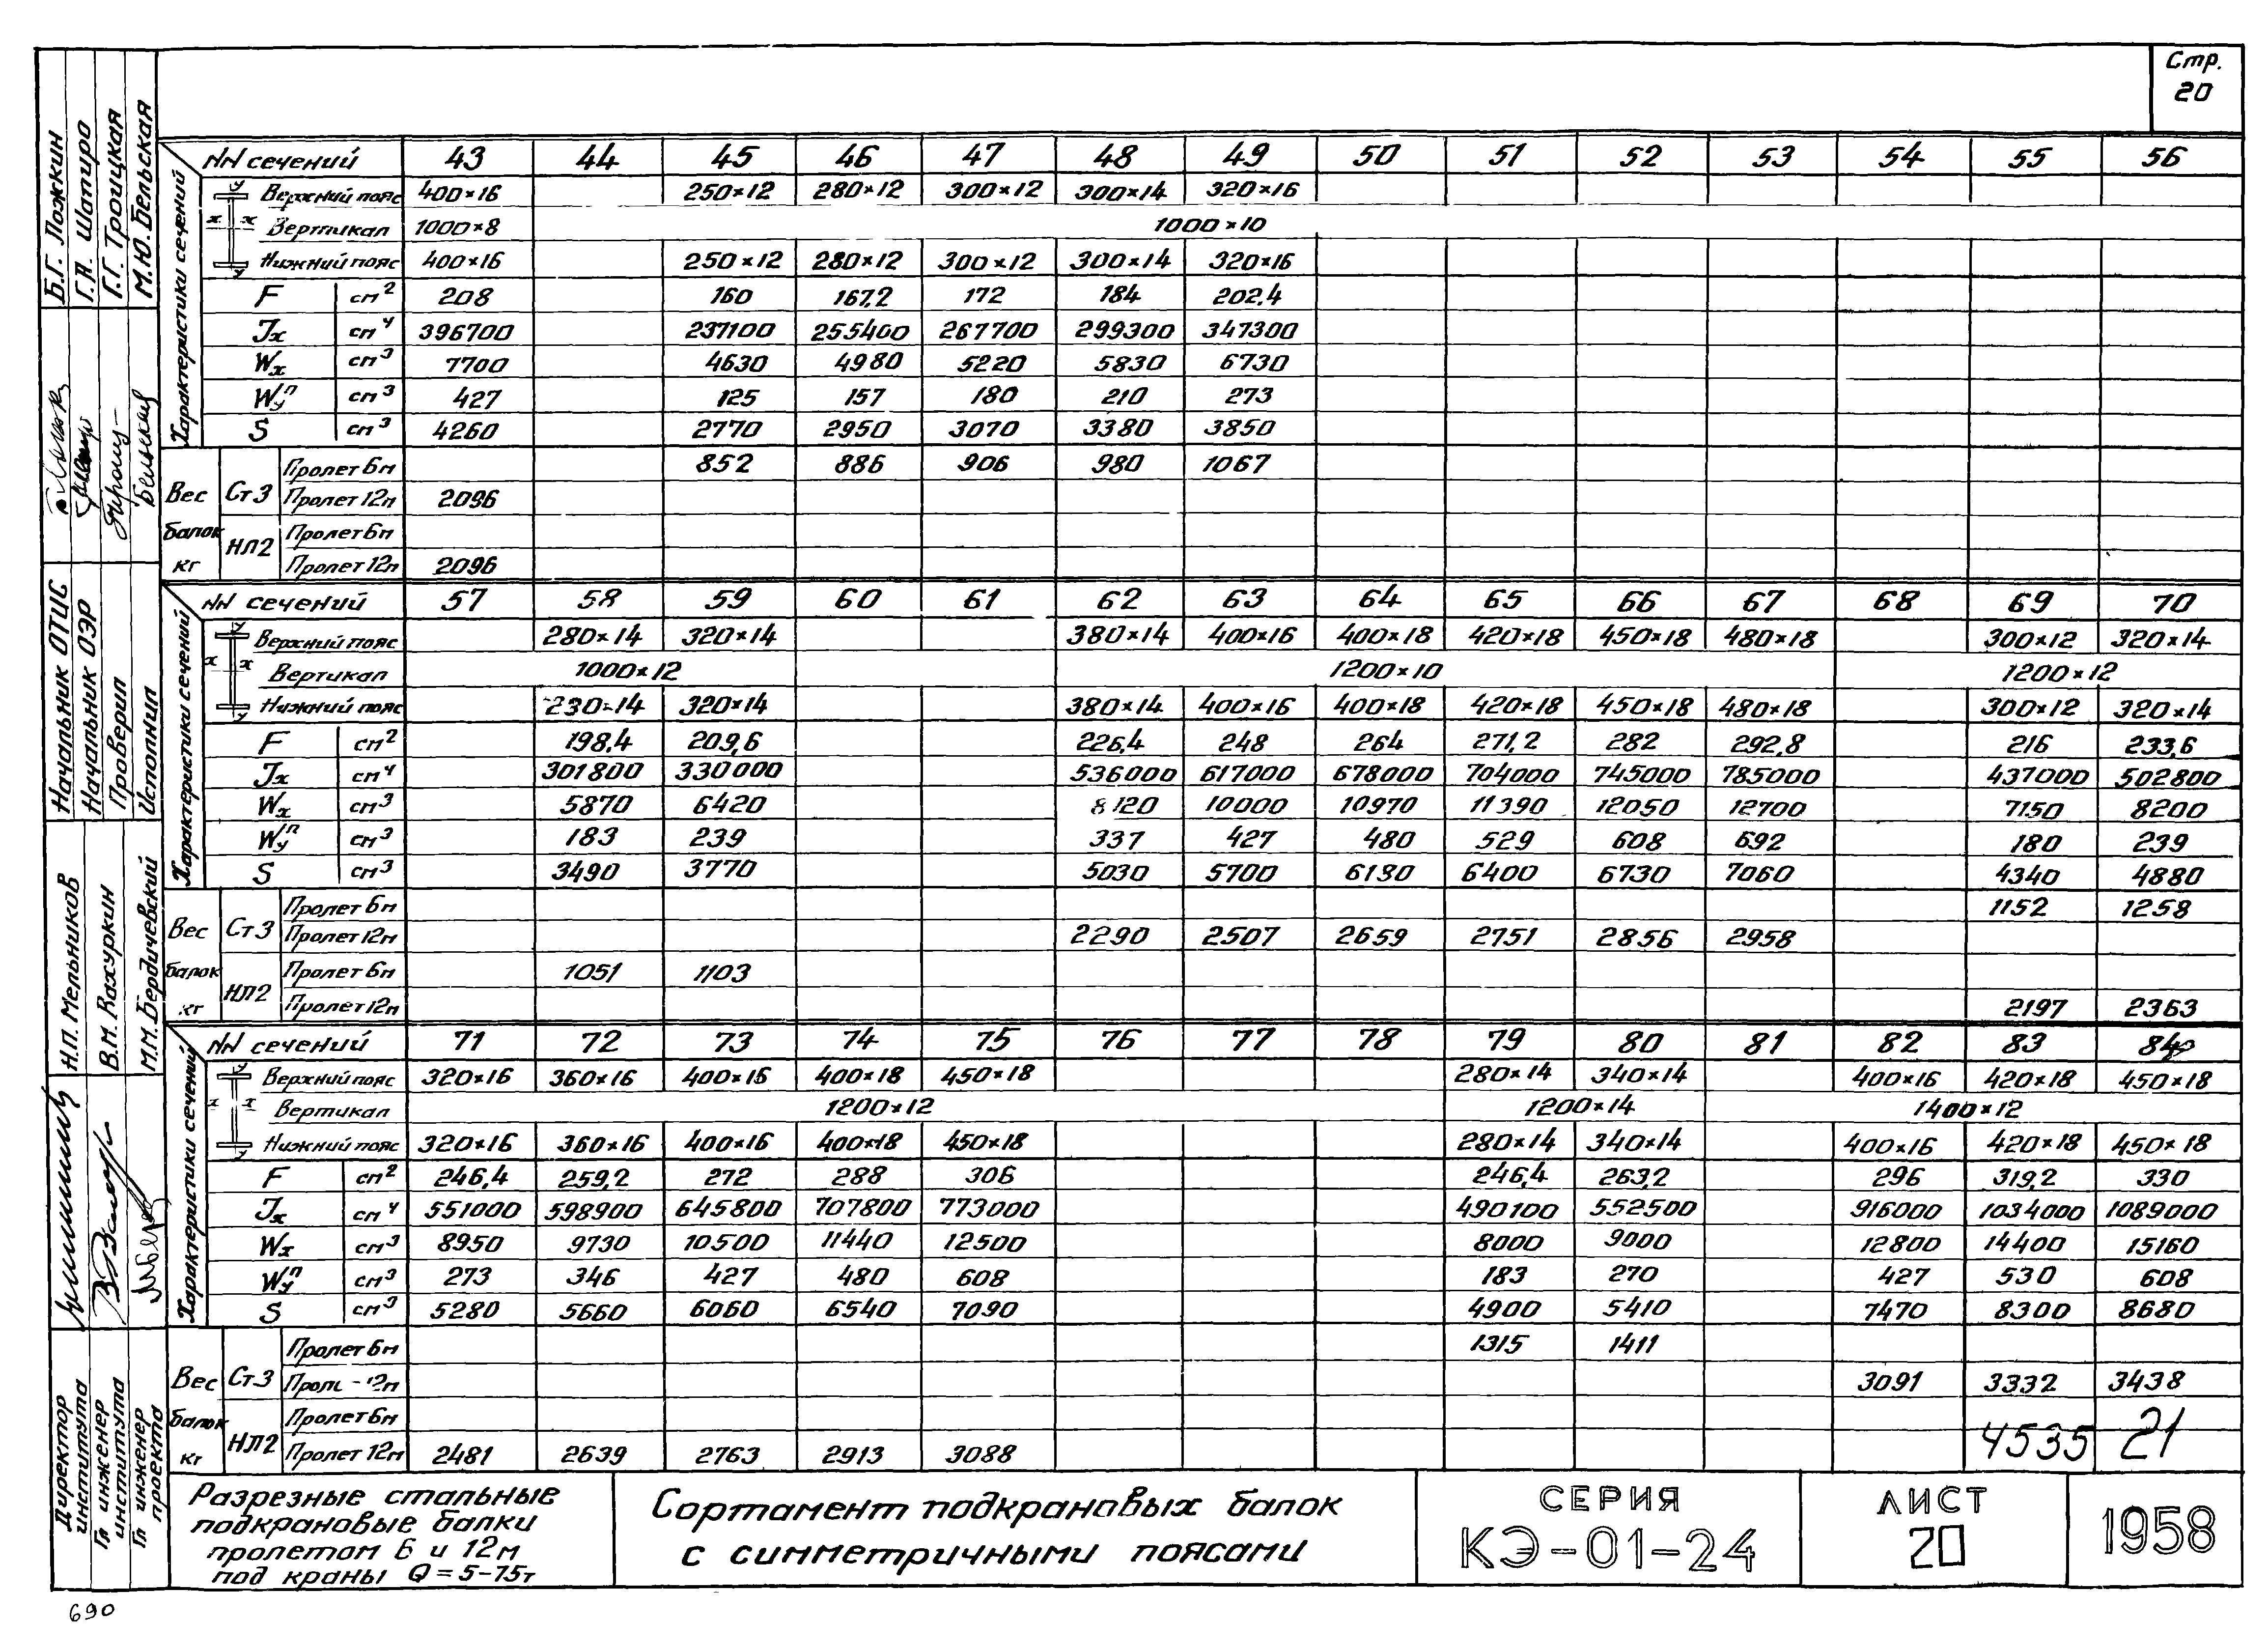 Стр.
20
NN сечений 43 44 45 46 47 48 49 50 51 52 53 54 55 56
Характеристики сечений
Верхний пояс 400×16 250×12 280×12 300×12 300×14 320×16
Вертикал 1000×8 1000×10
Нижний пояс 400×16 250×12 280×12 300×12 300×14 320×16
F см² 208 160 167,2 172 184 202,4
Jx см⁴ 396700 237100 255400 267700 299300 347300
Wx см³ 7700 4630 4980 5220 5830 6730
Wуп см³ 427 125 157 180 210 273
S см³ 4260 2770 2950 3070 3380 3850
Вес балок кг
Ст3 Пролет 6м 852 886 906 980 1067
Пролет 12м 2096
НЛ2 Пролет 6м
Пролет 12м 2096
NN сечений 57 58 59 60 61 62 63 64 65 66 67 68 69 70
Характеристики сечений
Верхний пояс 280×14 320×14 380×14 400×16 400×18 420×18 450×18 480×18 300×12 320×14
Вертикал 1000×12 1200×10 1200×12
Нижний пояс 230×14 320×14 380×14 400×16 400×18 420×18 450×18 480×18 300×12 320×14
F см² 198,4 209,6 226,4 248 264 271,2 282 292,8 216 233,6
Jx см⁴ 301800 330000 536000 617000 678000 704000 745000 785000 437000 502800
Wx см³ 5870 6420 8120 10000 10970 11390 12050 12700 7150 8200
Wуп см³ 183 239 337 427 480 529 608 692 180 239
S см³ 3490 3770 5030 5700 6180 6400 6730 7060 4340 4880
Вес балок кг
Ст3 Пролет 6м 1152 1258
Пролет 12м 2290 2507 2659 2751 2856 2958
НЛ2 Пролет 6м 1051 1103
Пролет 12м 2197 2363
NN сечений 71 72 73 74 75 76 77 78 79 80 81 82 83 84
Характеристики сечений
Верхний пояс 320×16 360×16 400×16 400×18 450×18 280×14 340×14 400×16 420×18 450×18
Вертикал 1200×12 1200×14 1400×12
Нижний пояс 320×16 360×16 400×16 400×18 450×18 280×14 340×14 400×16 420×18 450×18
F см² 246,4 259,2 272 288 306 246,4 263,2 296 319,2 330
Jx см⁴ 551000 598900 645800 707800 773000 490100 552500 916000 1034000 1089000
Wx см³ 8950 9730 10500 11440 12500 8000 9000 12800 14400 15160
Wуп см³ 273 346 427 480 608 183 270 427 530 608
S см³ 5280 5660 6060 6540 7090 4900 5410 7470 8300 8680
Вес балок кг
Ст3 Пролет 6м 1315 1411
12м 3091 3332 3438
НЛ2 Пролет 6м
Пролет 12м 2481 2639 2763 2913 3088
4535 21
Разрезные стальные
подкрановые балки
пролетом 6 и 12м
под краны Q=5-75т
Сортамент подкрановых балок
с симметричными поясами
СЕРИЯ
КЭ-01-24
ЛИСТ
20
1958
Б.Г. Ложкин
Г.А. Шапиро
Г.Г. Троицкая
М.Ю. Бельская
Начальник ОТИС
Начальник ОЭР
Проверил
Исполнил
Н.П. Мельников
В.М. Вахуркин
М.М. Бердичевский
Директор института
Гл инженер института
Гл инженер проекта
690